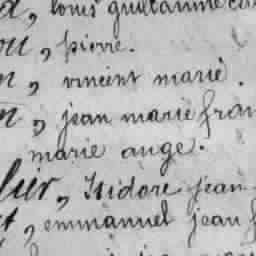 , louis guillaume
ou, pierre.
n, vincent marie.
n, jean marie fran
marie ange.
lur, Isidore jean
t, emmanuel jean f